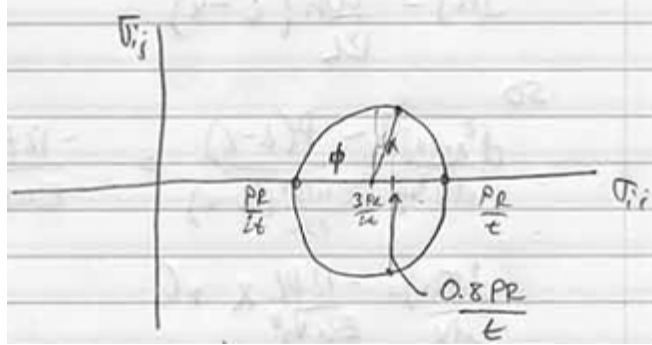 σij
φ α
PR/2t 3PR/4t PR/t σii
0.8PR/t